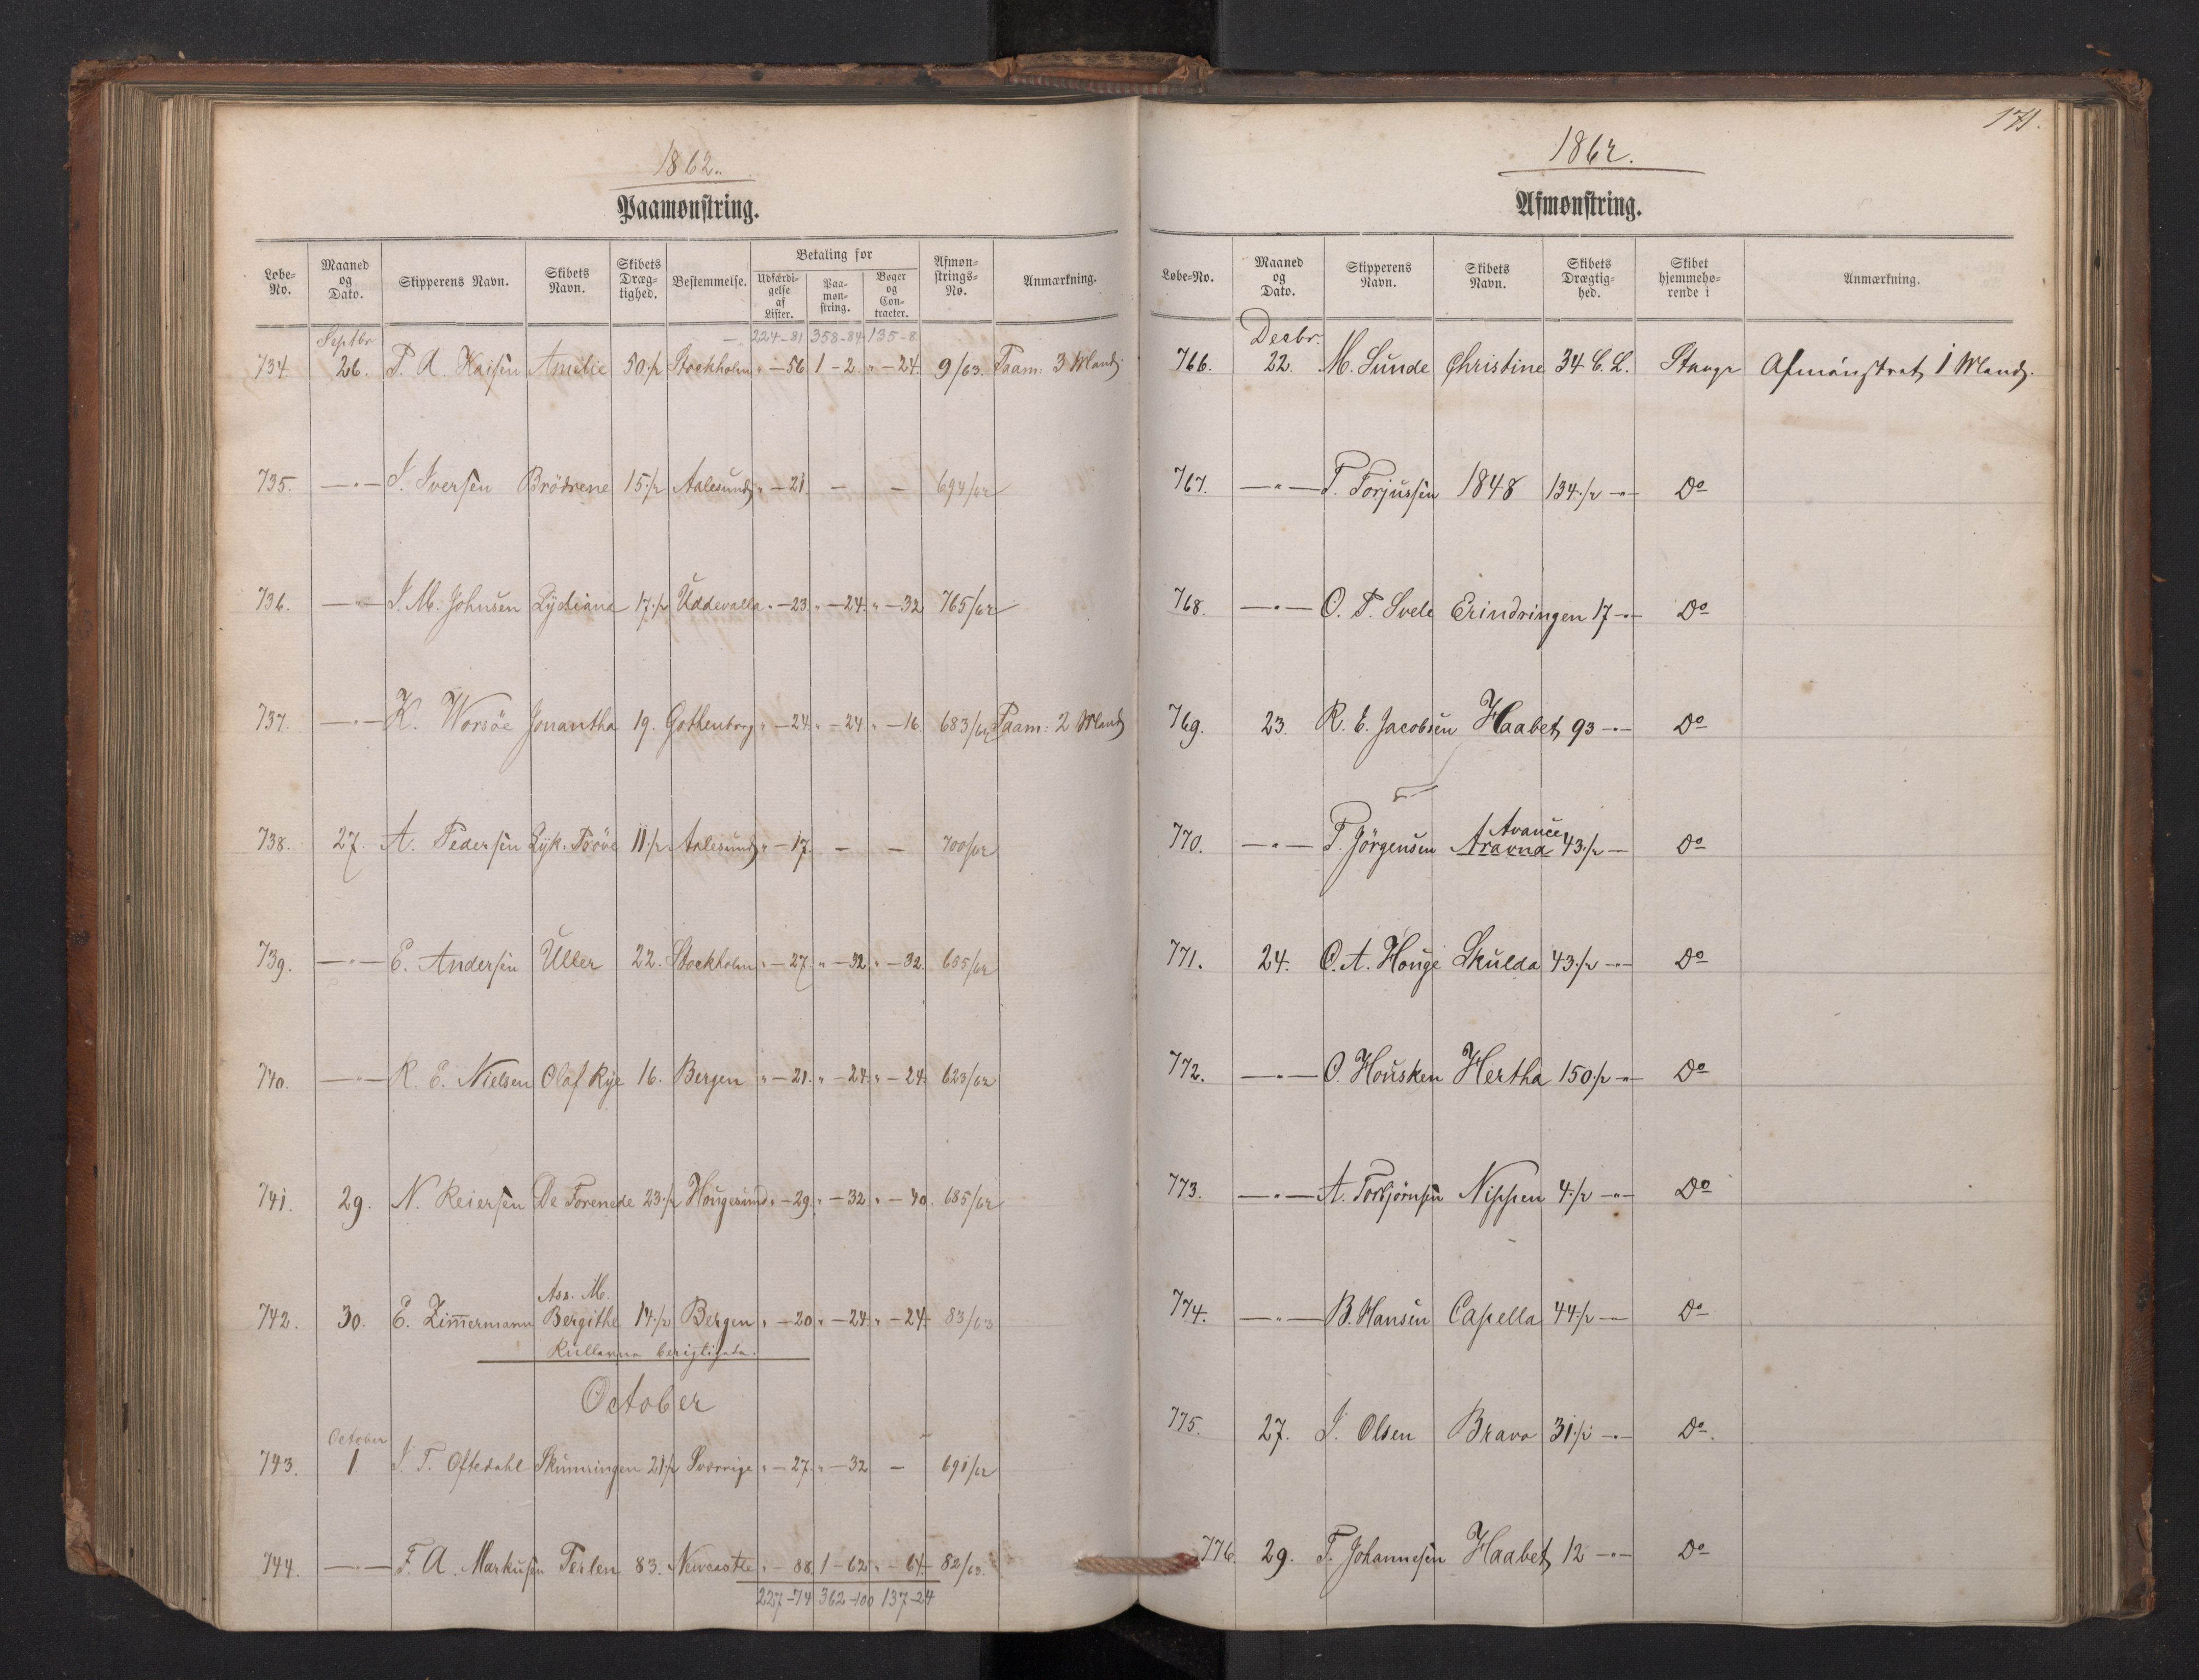 1862.
Paamønstring.
Løbe-No. Maaned og Dato. Skipperens Navn. Skibets Navn. Skibets Dræg-tighed. Bestemmelse. Betaling for Udfærdi-gelse af Lister. Paa-møn-string. Bøger og Con-tracter. Afmøn-strings-No. Anmærkning.
224-81 358-84 135-8
Septbr
734. 26. P. A. Kaisen Amelie 50 1/2 Stockholm " - 56 1 - 2 " - 24 9/63. Paam: 3 Mand.
735. — " — I. Iversen Brödrene 15 1/2 Aalesund " - 21 - - 694/62
736. — " — I. M. Johnsen Lydiana 17 1/2 Uddevalla " - 23. " - 24. " - 32 765/62
737. — " — K. Worsöe Jonantha 19. Gothenborg " - 24. " - 24 " - 16. 683/62 Paam: 2 Mand
738. 27. A. Pedersen Lyk. Pröve 11 1/2 Aalesund " - 17. - - 700/62
739. — " — E. Andersen Uller 22. Stockholm " - 27. " - 32 " - 32. 655/62
740. — " — R. E. Nielsen Olaf Rye 16. Bergen " - 21. " - 24. " - 24. 623/62
741. 29. N. Reiersen De Forenede 23 1/2 Hougesund " - 29. " - 32. " - 40. 685/62
Ass. M.
742. 30. E. Zimmermann Bergithe 14 1/2 Bergen " - 20 " - 24. " - 24. 83/63
Rullerne berigtigede.
October
October
743. 1 I. T. Oftedahl Skumringen 21 1/2 Sverrige " - 27. " - 32 - 691/62
744. — " — F. A. Markusen Perlen 83. Newcastle " - 88. 1 - 62 " - 64 82/63.
227-74 362-100 137-24
171.
1862.
Afmønstring.
Løbe-No. Maaned og Dato. Skipperens Navn. Skibets Navn. Skibets Drægtig-hed. Skibet hjemmehø-rende i Anmærkning.
Decbr.
766. 22. M. Sunde Christine 34 C. L. Stavgr Afmönstret 1 Mand.
767. — " — T. Torjussen 1848 134 1/2 — " — Do
768. — " — O. T. Svele Erindringen 17 — " — Do
769. 23. R. E. Jacobsen Haabet 93 — " — Do
Avance
770. — " — P. Jörgensen Aravna 43 1/2 — Do
771. 24. O. A. Houge Skulda 43 1/2 — " — Do
772. — " — O. Housken Hertha 150 1/2 — " — Do
773. — " — A. Torbjörnsen Nippen 4 1/2 — " — Do
774. — " — B. Hansen Capella 44 1/2 — Do
775. 27. I. Olsen Bravo 31 1/2 — " — Do.
776. 29. T. Johannesen Haabet 12 — " — Do